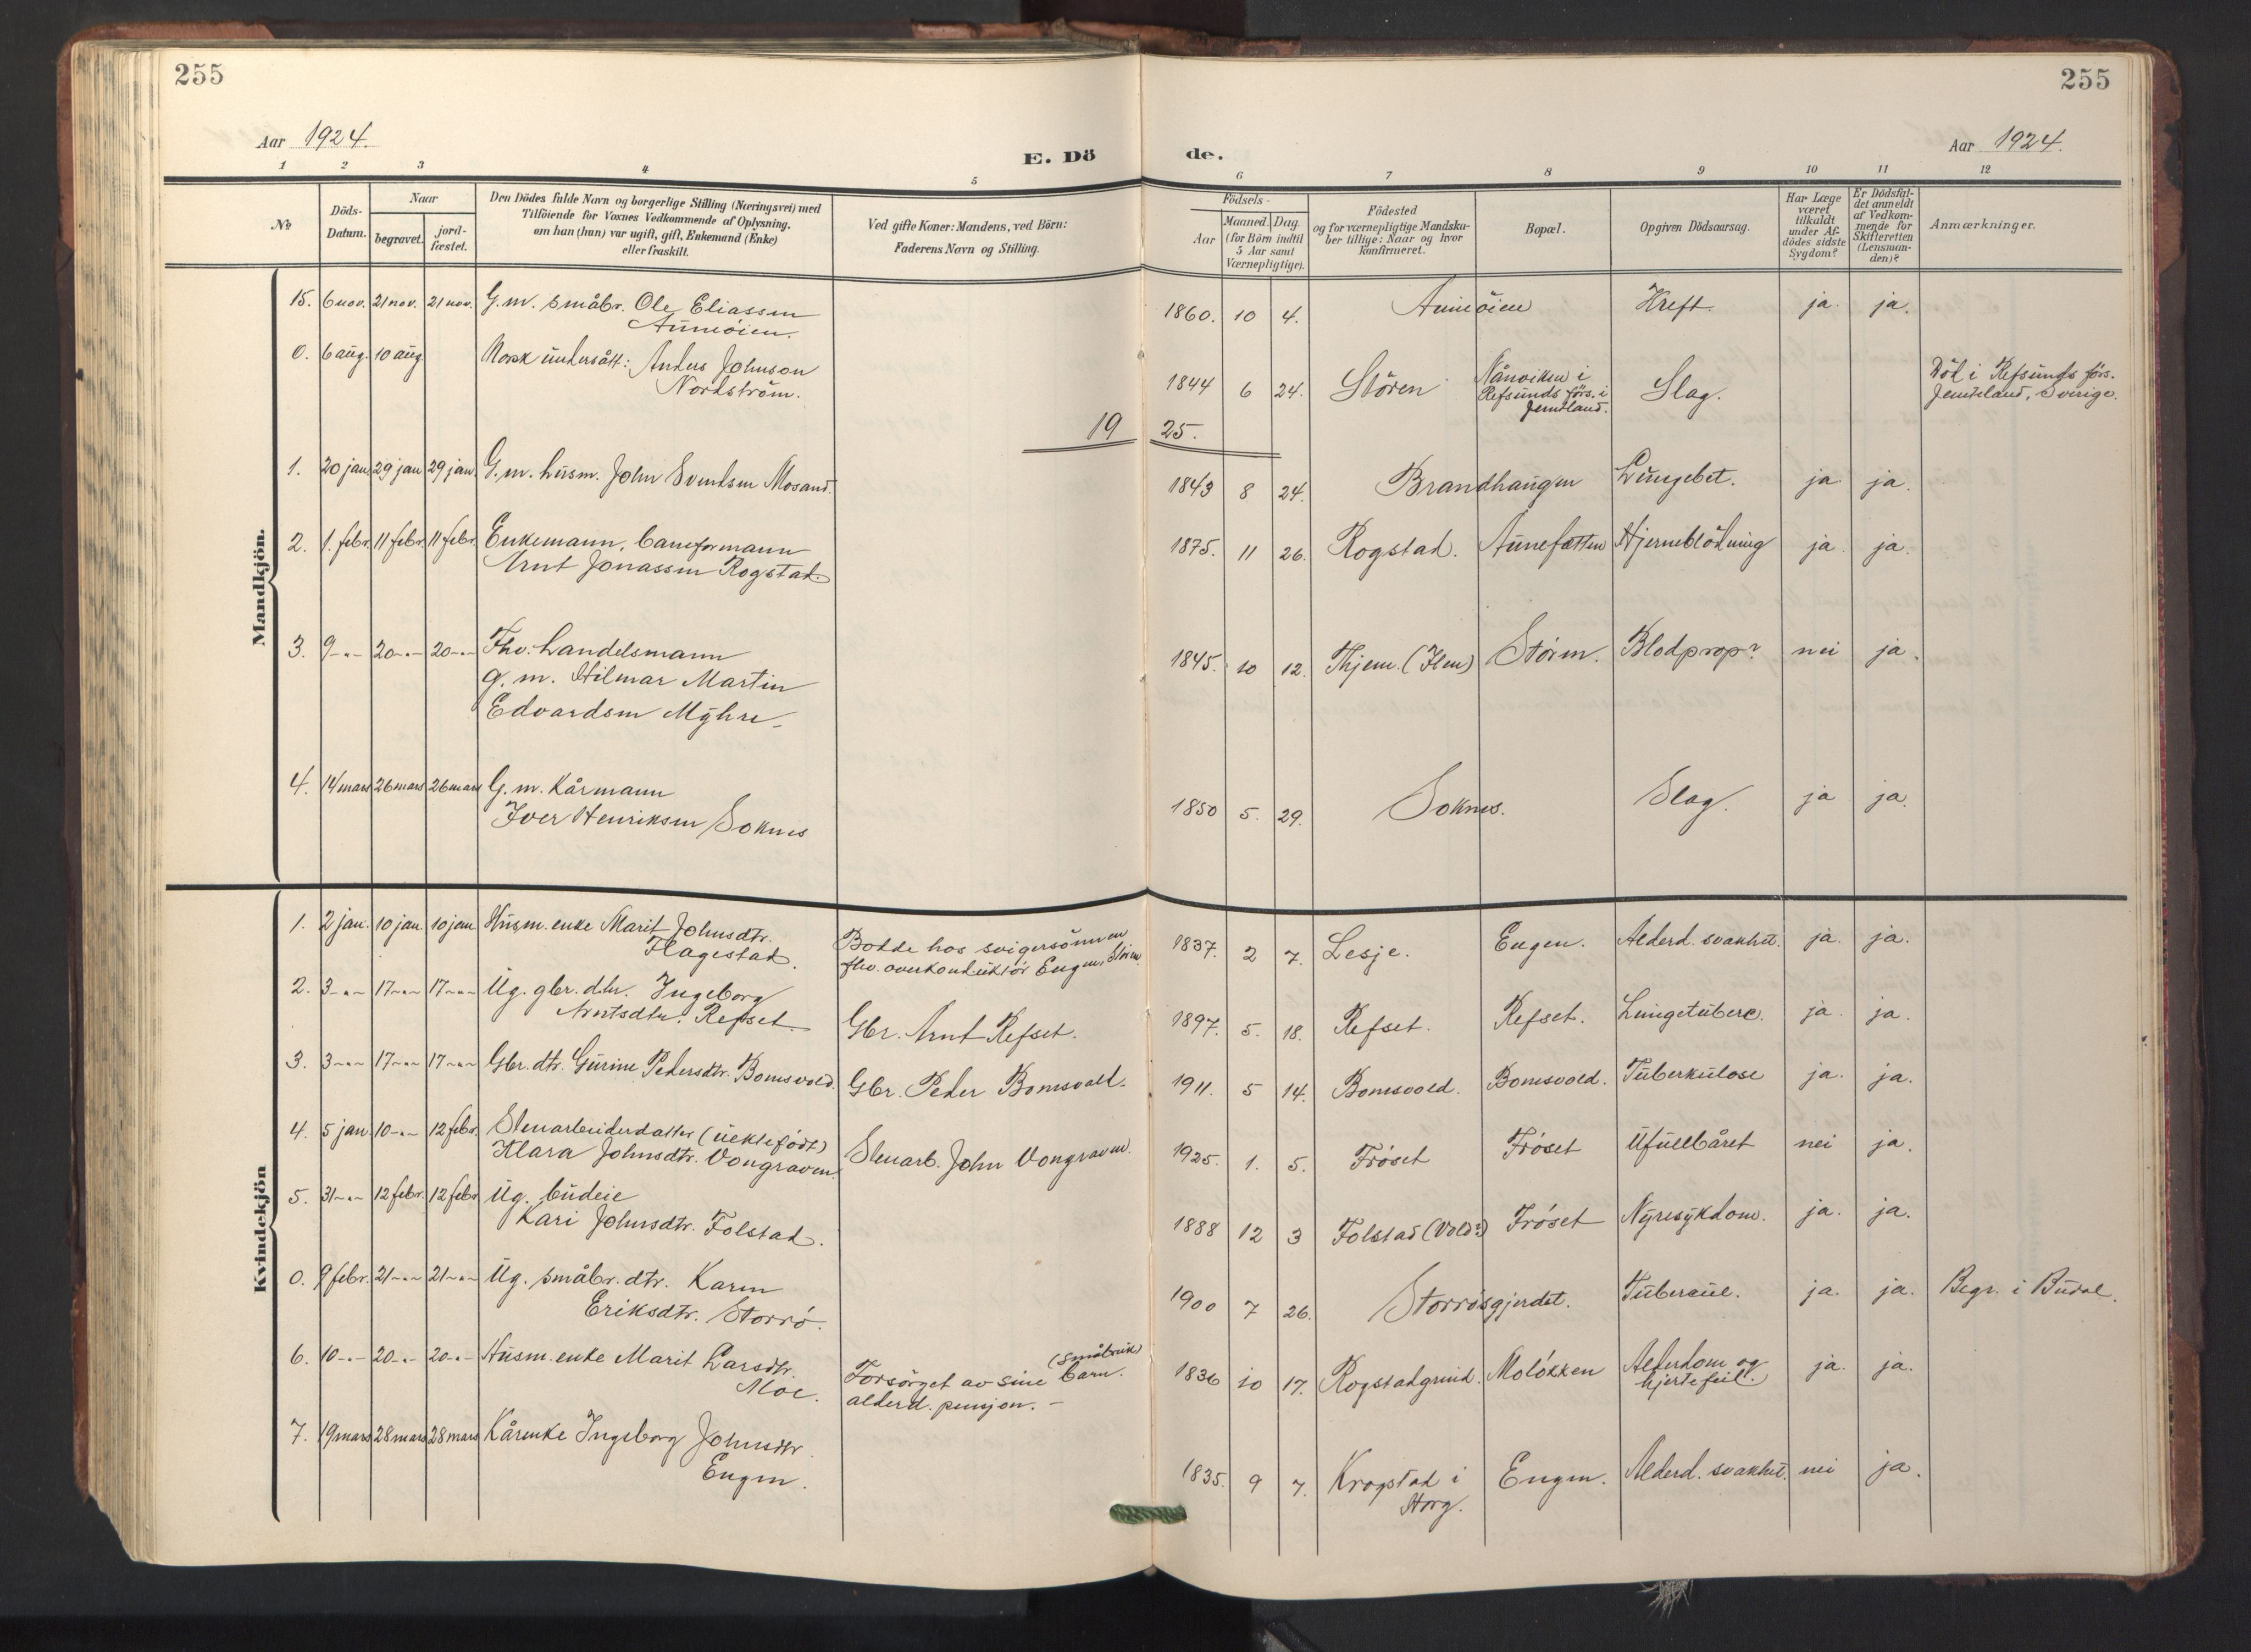 255
255
Aar 1924.
E. Dö
de.
Aar 1924.
1 2 3 4 5 6 7 8 9 10 11 12
No
Döds-Datum.
Naar
begravet.
jord-fæstet.
Den Dödes fulde Navn og borgerlige Stilling (Næringsvei) med
Tilföiende for Voxnes Vedkommende af Oplysning,
om han (hun) var ugift, gift, Enkemand (Enke)
eller fraskilt.
Ved gifte Koner: Mandens, ved Börn:
Faderens Navn og Stilling.
Födsels-
Aar
Maaned. Dag.
(for Börn indtil
5 Aar samt
Værnepligtige).
Födested
og for værnepligtige Mandska-
ber tillige: Naar og hvor
konfirmeret.
Bopæl.
Opgiven Dödsaarsag.
Har Læge
været
tilkaldt
under Af-
dödes sidste
Sygdom?
Er Dödsfal-
det anmeldt
af Vedkom-
mende for
Skifteretten
(Lensman-
den)?
Anmærkninger.
Mandkjön.
15. 6 nov. 21 nov. 21 nov. G. m. småbr. Ole Eliassen 1860. 10 4. Aunöien Kreft. ja. ja.
Aunöien.
0. 6 aug. 10 aug. Norsk undersått: Anders Johnson 1844 6 24. Stören Nånviken i Slag. Död i Refsunds förs.
Nordström. Refsunds förs. i Jemteland, Sverige.
Jemtland.
19 25.
1. 20 jan. 29 jan. 29 jan. G. m. husm. John Svendsen Mosand. 1843 8 24. Brandhaugen Lungebet. ja. ja.
2. 1. febr. 11 febr. 11 febr. Enkemann, baneformann 1875. 11 26. Rogstad. Aunefætten Hjerneblödning ja ja.
Arnt Jonassen Rogstad.
3. 9-"- 20-"- 20-"- Fhv. handelsmann 1845. 10 12. Thjem (Ilen) Stören. Blodprop? nei ja.
g. m. Hilmar Martin
Edvardsen Myhre
4. 14 mars 26 mars 26 mars G. m. Kårmann 1850 5. 29. Soknes. Slag. ja ja.
Iver Henriksen Soknes
Kvindekjön
1. 2 jan. 10 jan. 10 jan. Husm. enke Marit Johnsdtr. Bodde hos svigersönnen 1837. 2 7. Lesje. Engen. Alderd. svakhet. ja. ja.
Flagestad. fhv. overkonduktör Engen, Stören.
2. 3-"- 17-"- 17-"- Ug. gbr. dtr. Ingeborg Gbr. Arnt Refset. 1897. 5. 18. Refset. Refset. Lungetuberc. ja. ja.
Arntsdtr. Refset.
3. 3-"- 17-"- 17-"- Gbr. dtr. Gurine Pedersdtr. Bonesvold. Gbr. Peder Bonesvold. 1911. 5 14. Bonesvold. Bonesvold. Tuberkulose ja. ja.
4. 5 jan. 10-"- 12 febr. Stenarbeiderdatter (uektefödt) Stenarb. John Vongraven. 1925. 1. 5. Fröset Fröset Ufullbåret nei ja.
Klara Johnsdtr. Vongraven.
5. 31-"- 12 febr. 12 febr. Ug. budeie 1888 12 3 Folstad (Vold?) Fröset Nyresykdom. ja. ja.
Kari Johnsdtr. Folstad.
0. 9 febr. 21-"- 21-"- Ug. småbr. dtr. Karen 1900 7 26. Storrösgjerdet. Tubercul. ja. ja. Begr. i Budal.
Eriksdtr. Storrö.
6. 10-"- 20-"- 20-"- Husm. enke Marit Larsdtr. Forsörget av sine barn. (småbruk) 1836 10 17. Rogstadgrind. Molökken Alderdom og ja. ja.
Moe. alderd. pensjon. hjertefeil.
7. 19 mars 28 mars 28 mars Kårenke Ingeborg Johnsdtr. 1835. 9 7. Krogstad i Engen. Alderd. svakhet. nei ja.
Engen. Horg.